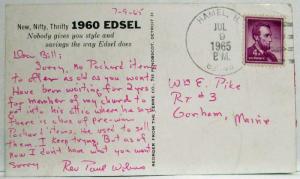 7-9-65
New, Nifty, Thrifty 1960 EDSEL
Nobody gives you style and
savings the way Edsel does
Dear Bill:
Sorry, no Packard items
to offer as old as you want.
Have been waiting for 2 yrs
for member of my church to
get into his attic where he has
there is a box of pre-war
Packard items. He used to sell
them. I keep trying. But as of
now I don't have what you want
Sorry
Rev Paul
HAMEL,
JUL
9
1965
P.M.
4¢
Wm E. Pike
Rt # 3
Gorham,
Maine